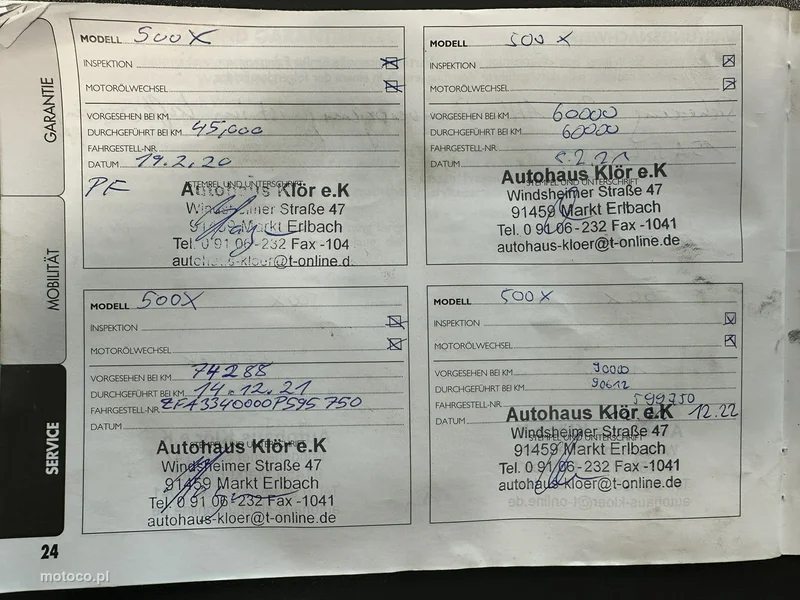 GARANTIE
MOBILITÄT
SERVICE
24
MODELL 500X
INSPEKTION
MOTORÖLWECHSEL
VORGESEHEN BEI KM
DURCHGEFÜHRT BEI KM 45,000
FAHRGESTELL-NR.
DATUM 19.2.20
PF
STEMPEL UND UNTERSCHRIFT
Autohaus Klör e.K
Windsheimer Straße 47
91459 Markt Erlbach
Tel. 0 91 06-232 Fax -104
autohaus-kloer@t-online.d
MODELL 500 X
INSPEKTION
MOTORÖLWECHSEL
VORGESEHEN BEI KM 60000
DURCHGEFÜHRT BEI KM 60000
FAHRGESTELL-NR.
DATUM 5.2.21
STEMPEL UND UNTERSCHRIFT
Autohaus Klör e.K
Windsheimer Straße 47
91459 Markt Erlbach
Tel. 0 91 06-232 Fax -1041
autohaus-kloer@t-online.de
MODELL 500X
INSPEKTION
MOTORÖLWECHSEL
VORGESEHEN BEI KM 74288
DURCHGEFÜHRT BEI KM 14.12.21
FAHRGESTELL-NR. ZFA3340000P595750
DATUM
STEMPEL UND UNTERSCHRIFT
Autohaus Klör e.K
Windsheimer Straße 47
91459 Markt Erlbach
Tel. 0 91 06-232 Fax -1041
autohaus-kloer@t-online.de
MODELL 500X
INSPEKTION
MOTORÖLWECHSEL
VORGESEHEN BEI KM 90000
DURCHGEFÜHRT BEI KM 90612
FAHRGESTELL-NR. 599750
DATUM 12.22
STEMPEL UND UNTERSCHRIFT
Autohaus Klör e.K
Windsheimer Straße 47
91459 Markt Erlbach
Tel. 0 91 06-232 Fax -1041
autohaus-kloer@t-online.de
motoco.pl